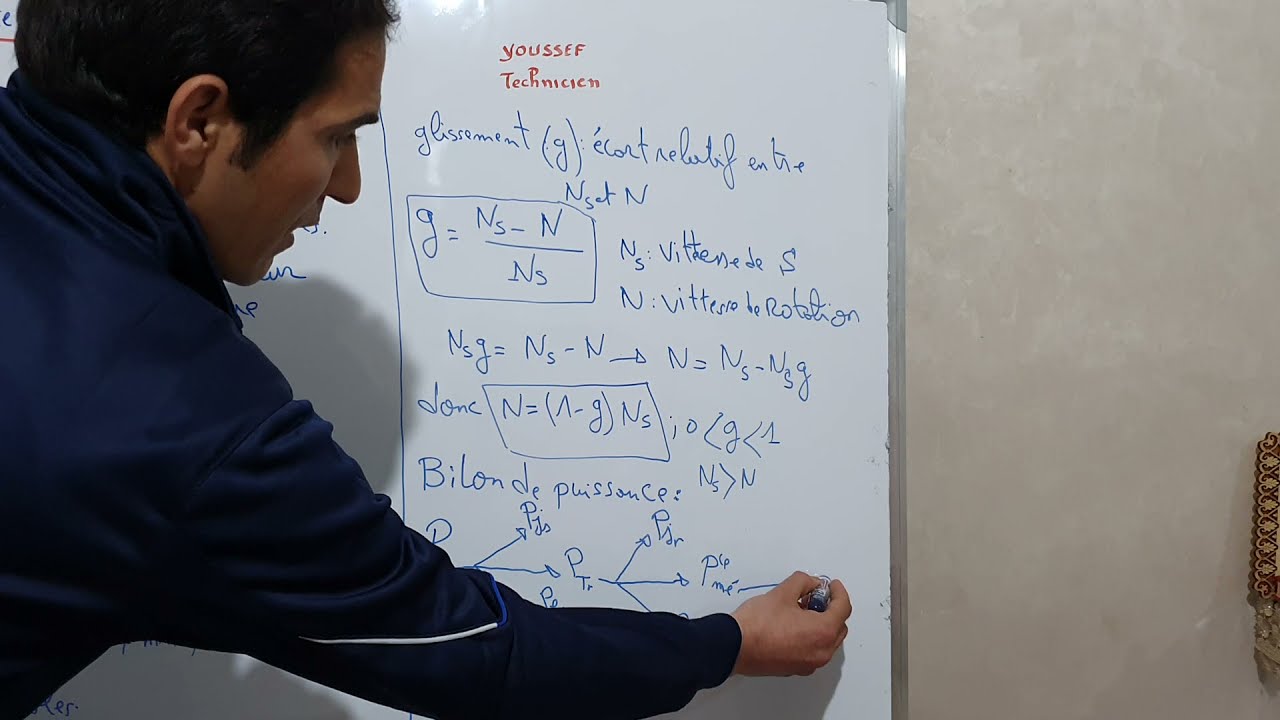 YOUSSEF
Technicien
glissement (g): écart relatif entre
Ns et N
g = Ns - N / Ns
Ns: Vittesse de S
N: Vittesse de Rotation
Nsg = Ns - N → N = Ns - Nsg
donc N = (1-g) Ns ; 0<g<1
Ns>N
Bilan de puissance:
Pjs
Pjr
P
PTr
Pmé